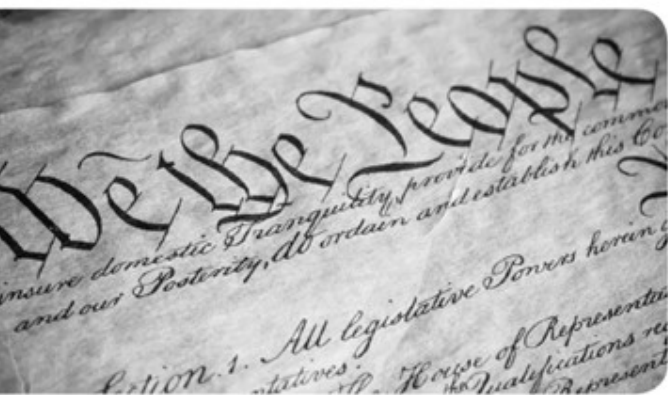 We the People
insure domestic Tranquility, provide for the comm
and our Posterity, do ordain and establish this Co
Section. 1. All legislative Powers herein
ntatives.
House of Representa
Qualifications re
Represent